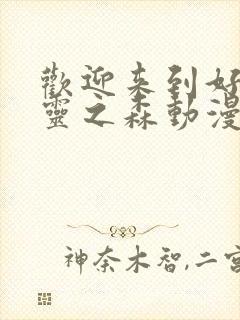 歡迎来到好
靈之森動漫
神奈木智,二宮